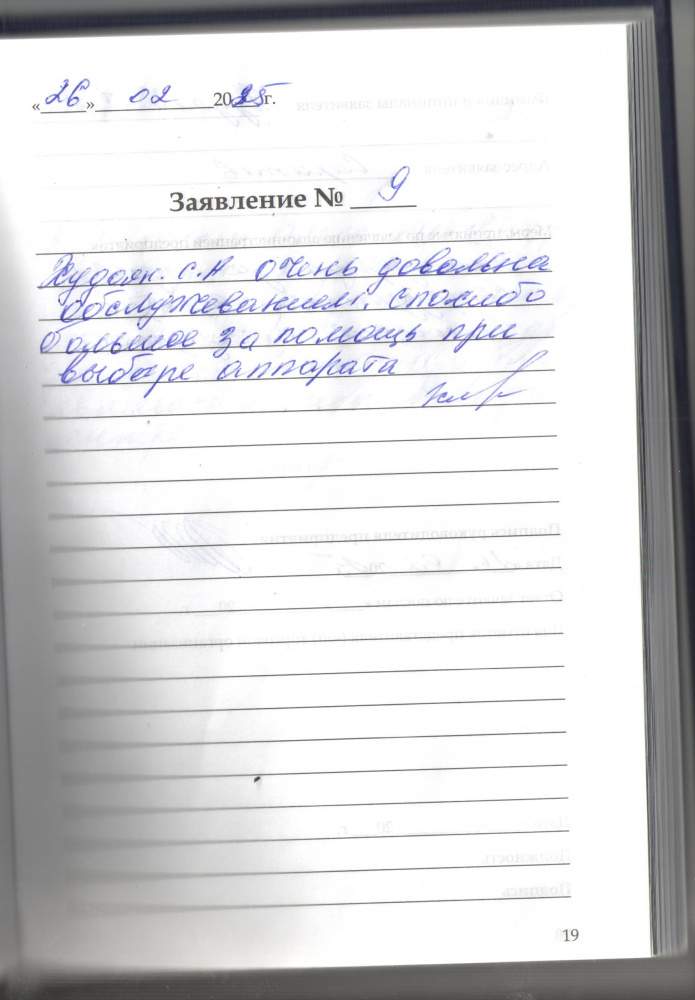 «26» 02 2025г.
Заявление № 9
Худояк. С.А очень довольна
обслужеванием. спосибо
большое за помощь при
выборе аппарата
19